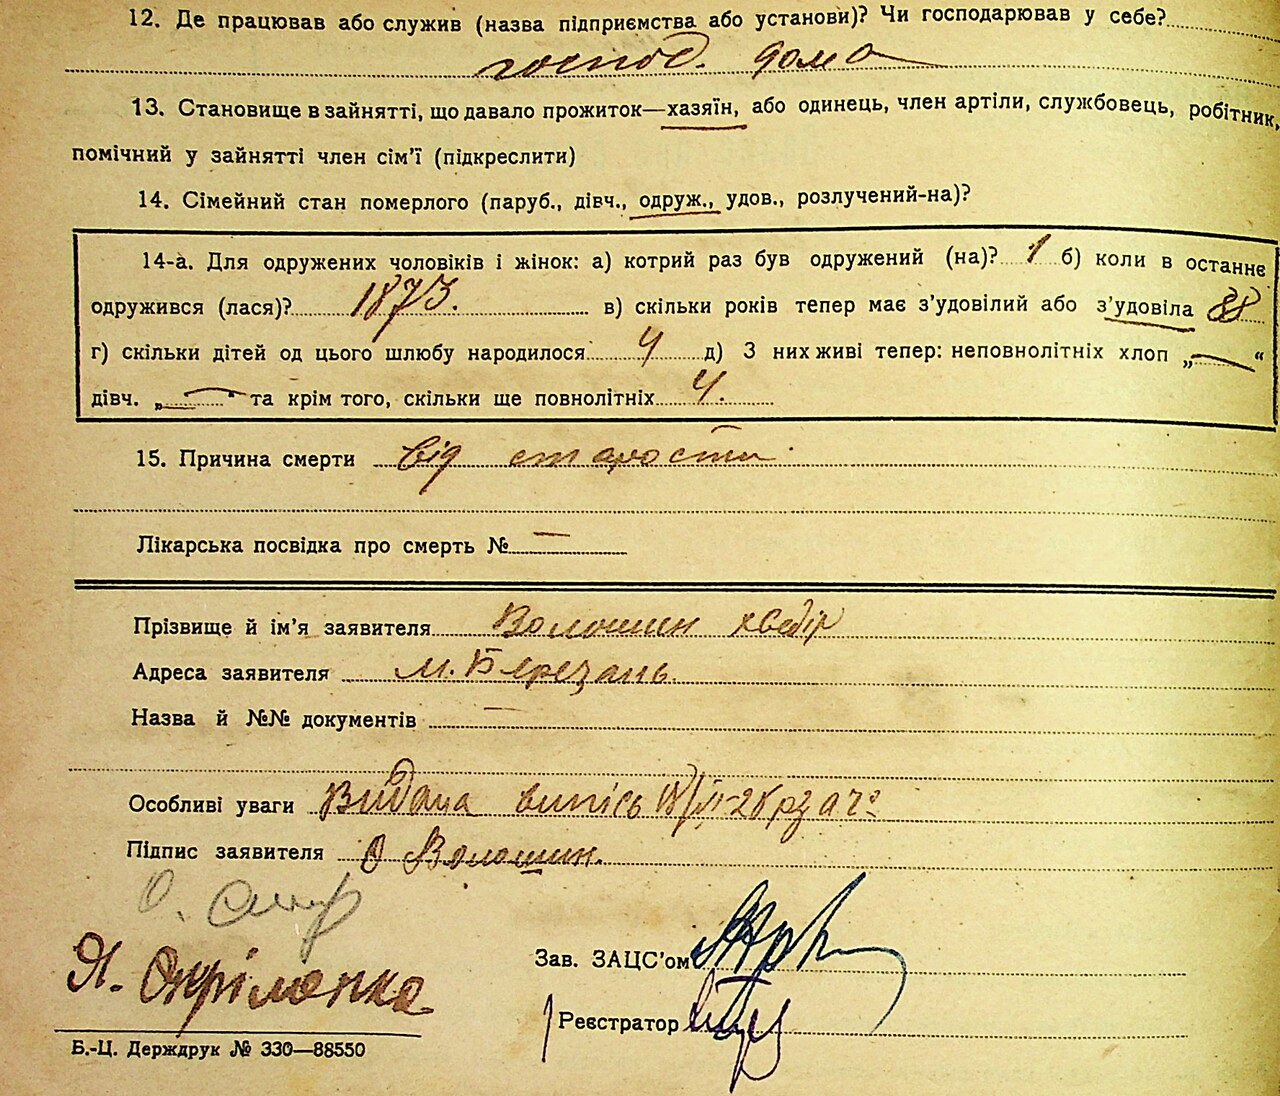 12. Де працював або служив (назва підприємства або установи)? Чи господарював у себе?
господ. дома
13. Становище в зайнятті, що давало прожиток—хазяїн, або одинець, член артіли, службовець, робітник,
помічний у зайнятті член сім'ї (підкреслити)
14. Сімейний стан померлого (паруб., дівч., одруж., удов., розлучений-на)?
14-а. Для одружених чоловіків і жінок: а) котрий раз був одружений (на)? 1 б) коли в останнє
одружився (лася)? 1873. в) скільки років тепер має з'удовілий або з'удовіла 88
г) скільки дітей од цього шлюбу народилося 4 д) З них живі тепер: неповнолітніх хлоп „—“
дівч. „—“ та крім того, скільки ще повнолітніх 4.
15. Причина смерти від старости.
Лікарська посвідка про смерть № —
Прізвище й ім'я заявителя Волошин Хведір
Адреса заявителя м. Березань.
Назва й №№ документів —
Особливі уваги Видана випісь
Підпис заявителя Волошин.
О.
Я.
Зав. ЗАЦС'ом
Реєстратор
Б.-Ц. Держдрук № 330—88550